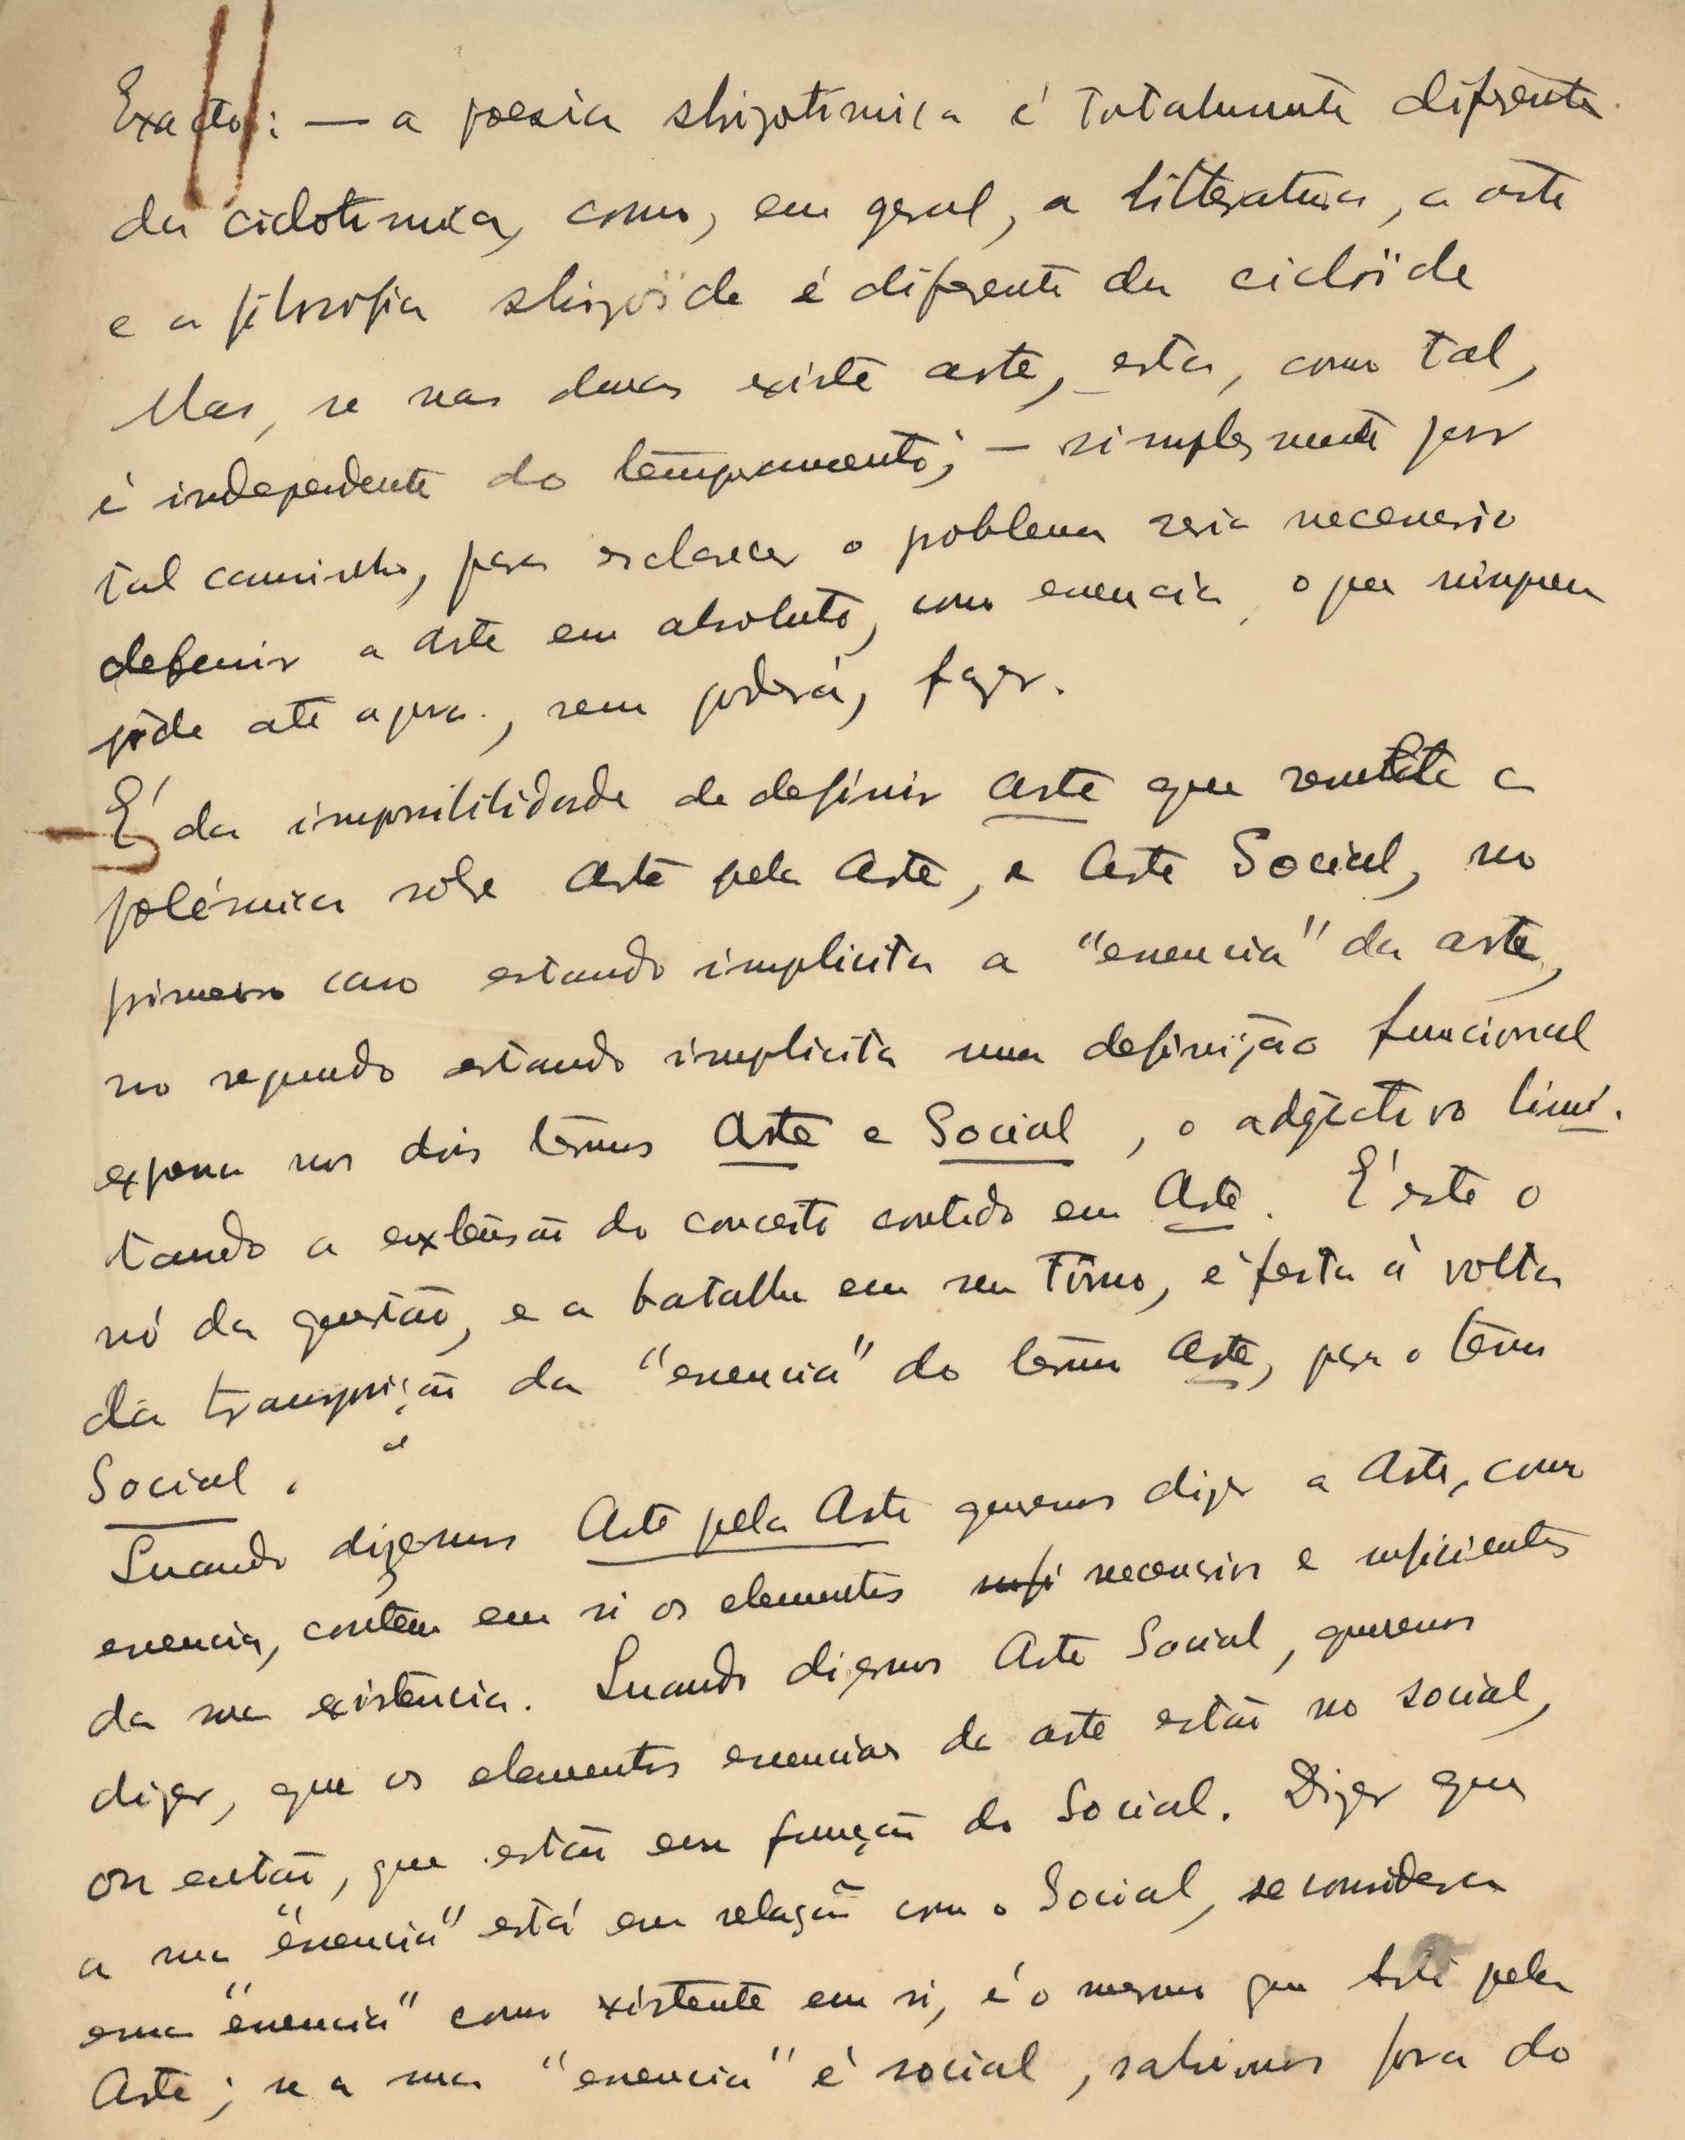 Exacto: — a poesia shizotimica é totalmente diferente
da ciclotimica, como, em geral, a litteratura, a arte
e a filosofia shizoïde é diferente da cicloïde
Mas, se nas duas existe arte, esta, como tal,
é independente do temperamento; — simplesmente por
tal caminho, para esclarecer o problema seria necessario
defenir a arte em absoluto, como essencia, o que ninguem
pôde até agora, nem poderá, fazer.
É da impossibilidade de definir arte que remette a
polémica sôbre Arte pela Arte, e Arte Social, no
primeiro caso estando implicita a "essencia" da arte,
no segundo estando implicita uma definição funcional
expressa nos dois têrmos Arte e Social, o adjectivo limi-
tando a extensão do conceito contido em Arte. É este o
nó da questão, e a batalha em seu tôrno, é feita á volta
da transposição da "essencia" do têrmo Arte, para o têrmo
Social.
Quando dizemos Arte pela Arte queremos dizer a Arte, como
essencia, contém em si os elementos sufi necessarios e suficientes
da sua existencia. Quando dizemos Arte Social, queremos
dizer, que os elementos essenciaes da arte estão no social,
ou então, que estão em função do Social. Dizer que
a sua "essencia" está em relação com o Social, se considera
essa "essencia" como existente em si, é o mesmo que Arte pela
Arte; se a sua "essencia" é social, sahimos fora do